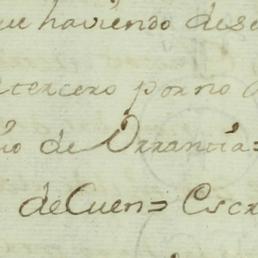 ue haviendo des
tercero por no
io de Orrantia=
de Cuen= Escr